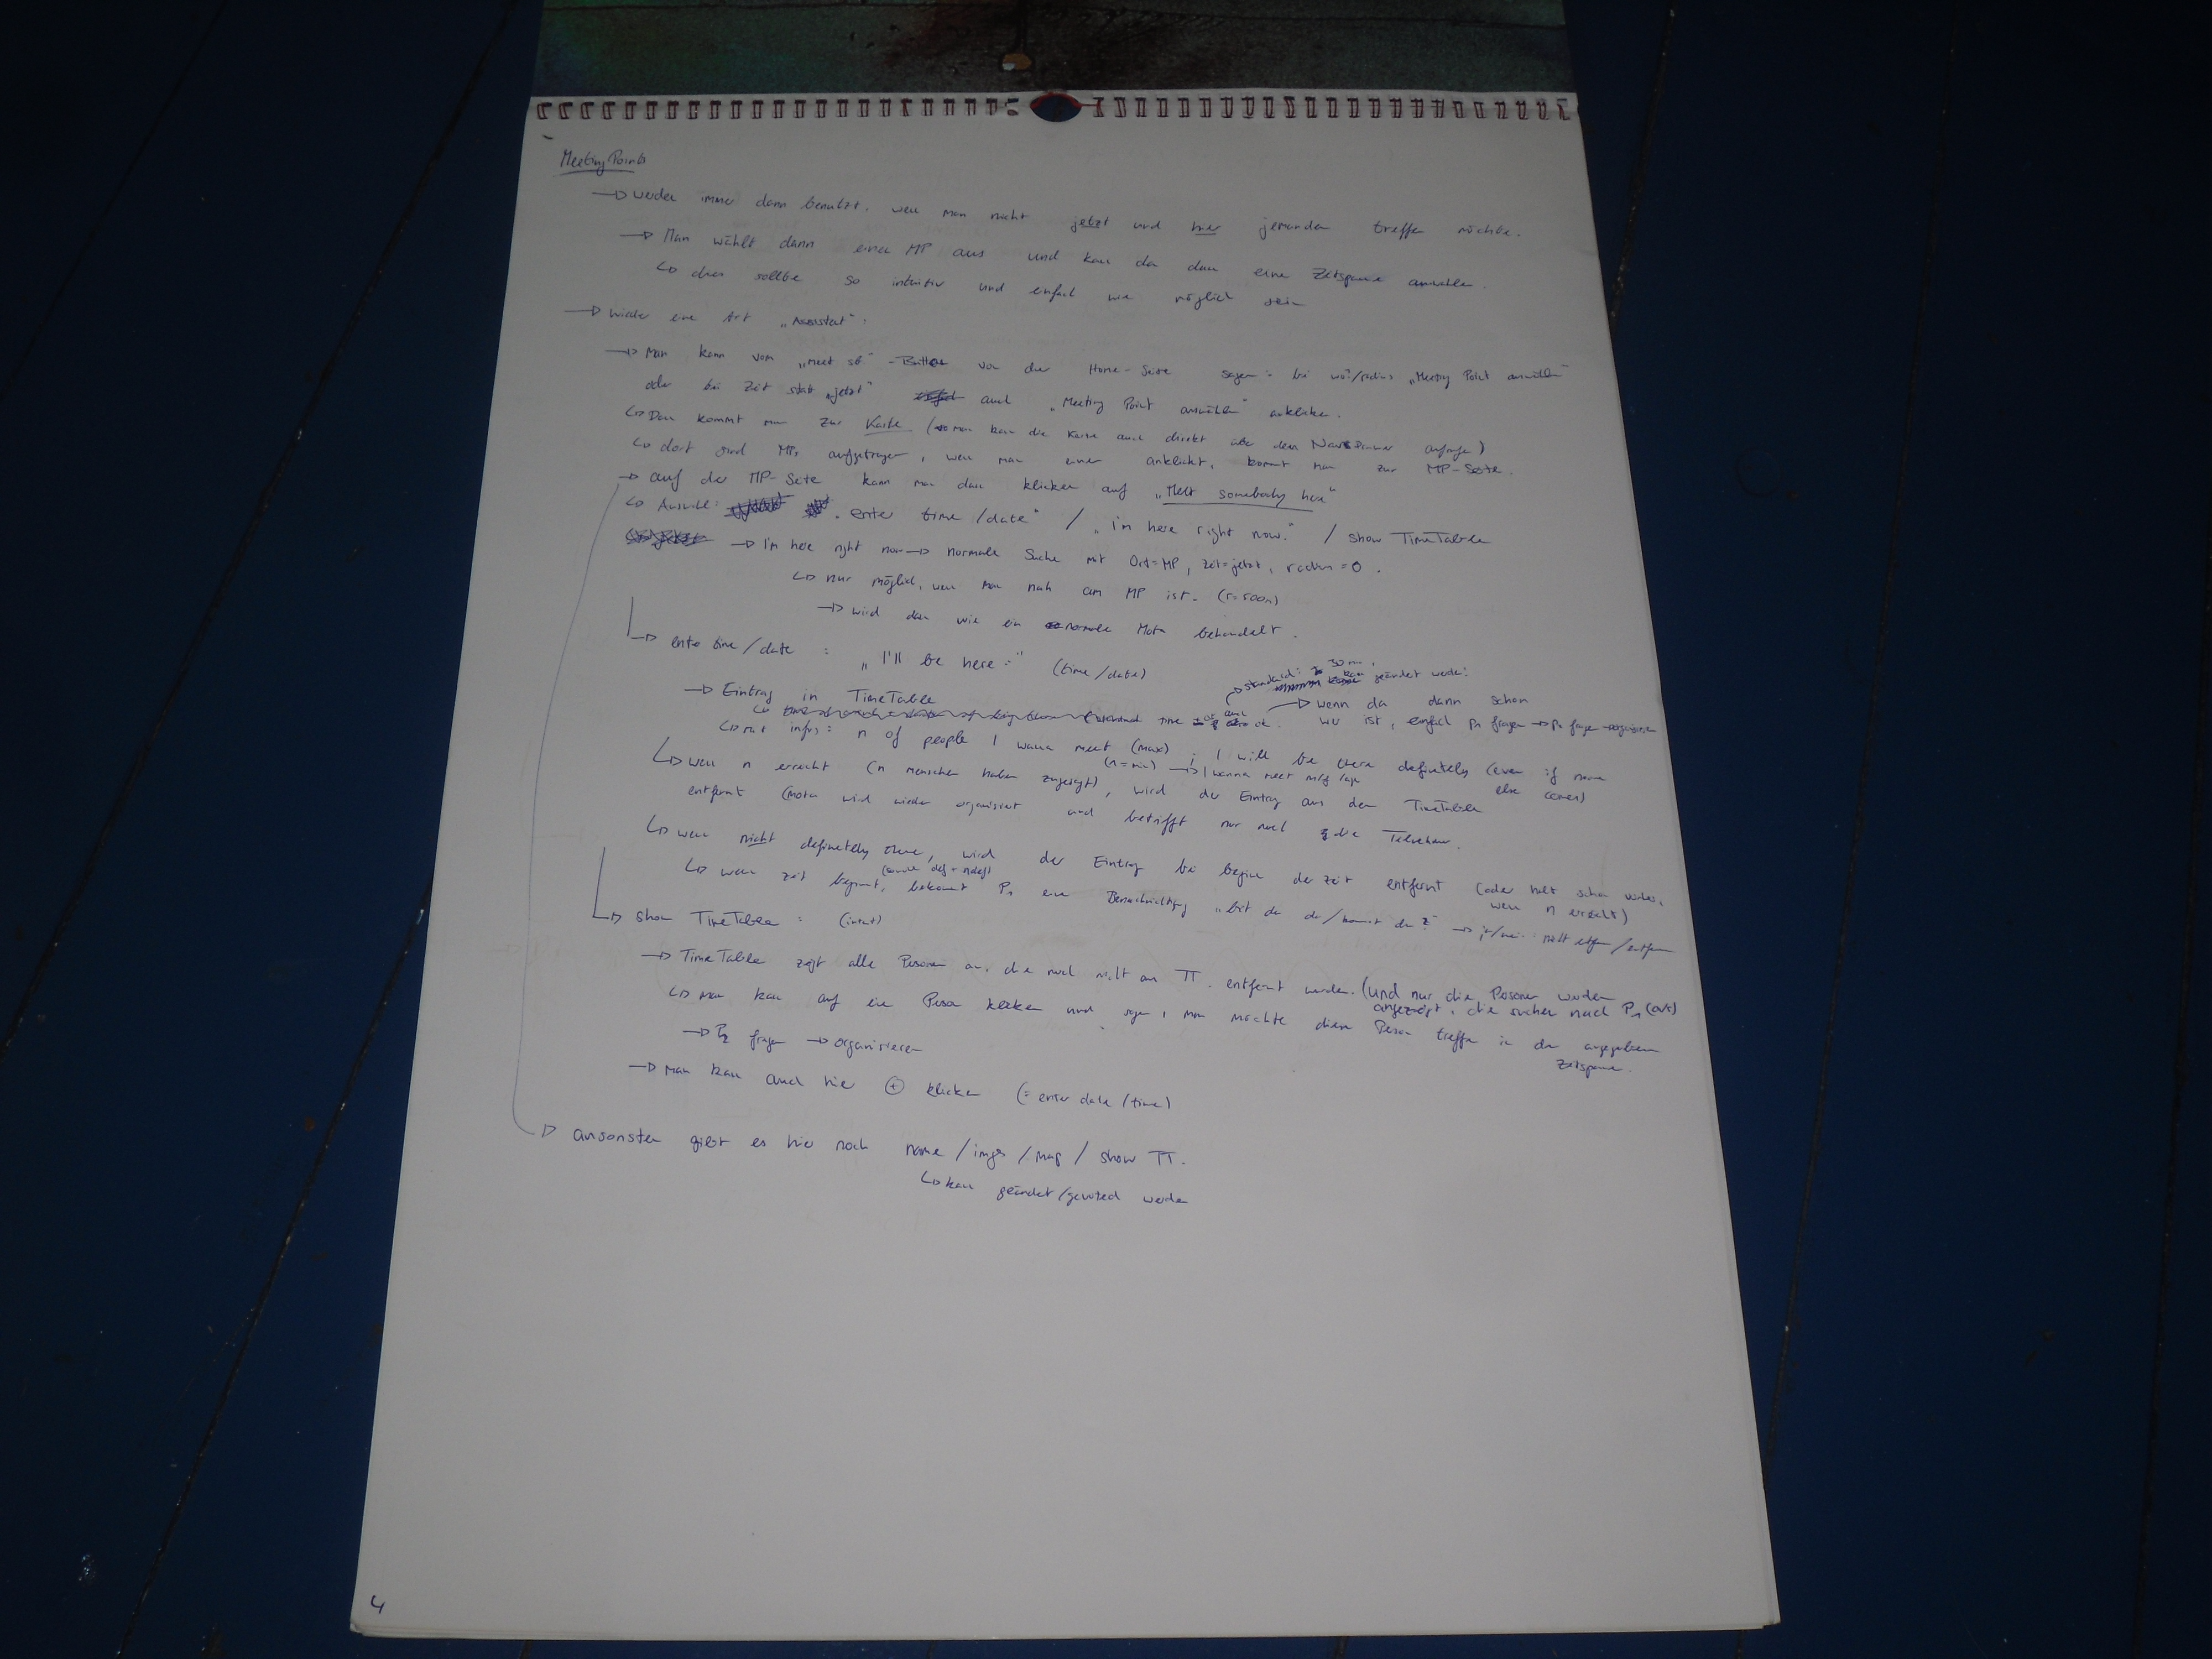 Meeting Points
→ werden immer dann benutzt, wenn man nicht jetzt und hier jemanden treffen möchte.
→ Man wählt dann einen MP aus und kann da dann eine Zeitspanne auswählen.
↳ dies sollte so intuitiv und einfach wie möglich sein
→ wieder eine Art „Assistent".
→ Man kann vom „meet sb" - Button von der Home-Seite sagen: bei wo?/radius „Meeting Point auswählen"
oder bei Zeit statt „jetzt" auch „Meeting Point auswählen" anklicken.
↳ Dann kommt man zur Karte (man kann die Karte auch direkt über den aufrufen)
↳ dort sind MPs aufgetragen, wenn man einen anklickt, kommt man zur MP-Seite.
→ auf der MP-Seite kann man dann klicken auf „Meet somebody here"
↳ Auswahl: „enter time/date" / „I'm here right now." / show TimeTable
→ I'm here right now → normale Suche mit Ort=MP, Zeit=jetzt, radius=0.
↳ nur möglich, wenn man nah am MP ist. (r=500m)
→ wird dann wie ein normale Mota behandelt.
→ enter time/date : „I'll be here:" (time/date)
→ standard: 30 min, kann geändert werden!
→ Eintrag in TimeTable
→ wenn da dann schon
wer ist, einfach P₁ fragen → P₁ fragen → organisieren
↳ mit infos: n of people I wanna meet (max) ; I will be there definitely (even if none
else comes)
(n=min) → I wanna meet m/f/age
↳ wenn n erreicht (n Menschen haben zugesagt), wird der Eintrag aus dem TimeTable
entfernt (Mota wird wieder organisiert und betrifft nur noch die Teilnehmer.
↳ wenn nicht definetely there, wird der Eintrag bei beginn der Zeit entfernt (oder halt schon vorher,
wenn n erreicht)
↳ wenn Zeit beginnt, bekommt P₁ eine Benachrichtigung „bist du da/kommst du?" → ja/nein
→ show TimeTable : (intent)
→ TimeTable zeigt alle Personen an, die noch nicht aus TT. entfernt wurden. (und nur die Personen werden
angezeigt, die suchen nach P₁ (aus)
↳ man kann auf eine Person klicken und sagen, man möchte diese Person treffen in der angegebenen
Zeitspanne.
→ P₂ fragen → organisieren
→ man kann auch hier ⊕ klicken (= enter date/time)
→ ansonsten gibt es hier noch name/imgs/map/show TT.
↳ kann geändert/gevoted werden
4